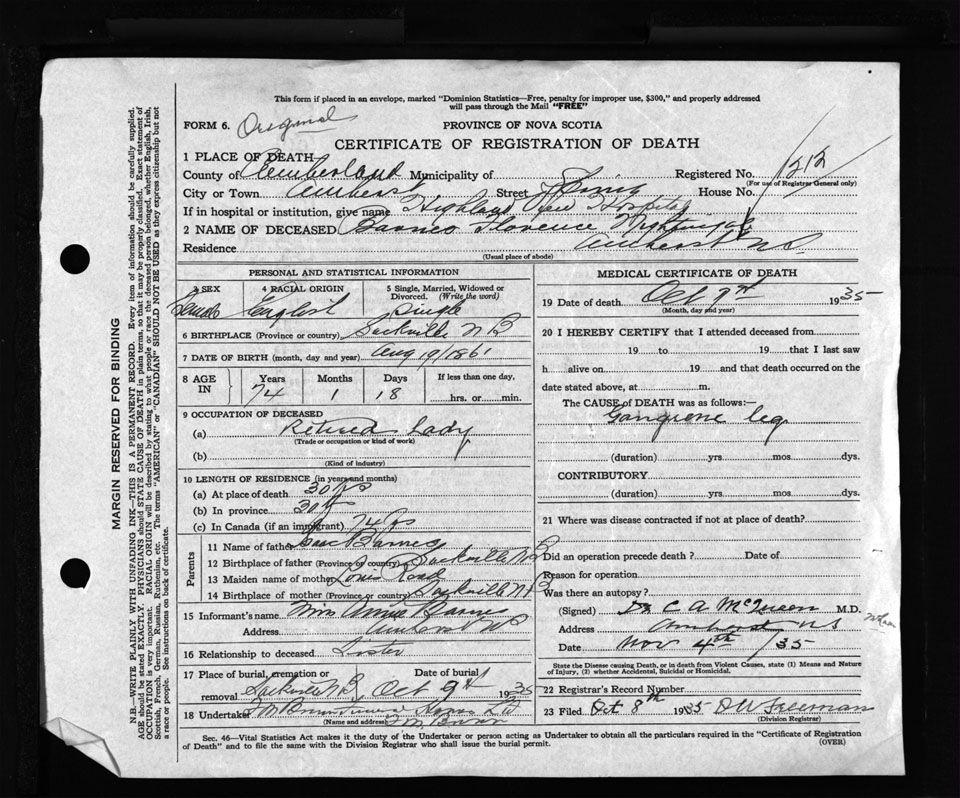 This form if placed in an envelope, marked "Dominion Statistics—Free, penalty for improper use, $300," and properly addressed
will pass through the Mail "FREE"
FORM 6. Original
PROVINCE OF NOVA SCOTIA
CERTIFICATE OF REGISTRATION OF DEATH
1 PLACE OF DEATH
County of Cumberland Municipality of Registered No. 1212
(For use of Registrar General only)
City or Town Amherst Street Spring House No.
If in hospital or institution, give name Highland View Hospital
2 NAME OF DECEASED Barnes Florence Nightingale
Residence Amherst NS
(Usual place of abode)
PERSONAL AND STATISTICAL INFORMATION
3 SEX 4 RACIAL ORIGIN 5 Single, Married, Widowed or
Divorced. (Write the word)
Female English Single
6 BIRTHPLACE (Province or country) Sackville NB
7 DATE OF BIRTH (month, day and year) Aug 19/1861
8 AGE IN Years Months Days If less than one day,
74 1 18 hrs. or min.
9 OCCUPATION OF DECEASED
(a) Retired Lady
(Trade or occupation or kind of work)
(b)
(Kind of industry)
10 LENGTH OF RESIDENCE (in years and months)
(a) At place of death 30 yrs
(b) In province 30 yrs
(c) In Canada (if an immigrant) 74 yrs
Parents
11 Name of father Isaac Barnes
12 Birthplace of father (Province or country) Sackville NB
13 Maiden name of mother
14 Birthplace of mother (Province or country) Sackville NB
15 Informant's name Mrs Annie Barnes
Address Amherst NS
16 Relationship to deceased Sister
17 Place of burial, cremation or Date of burial
removal Sackville NB Oct 9th 1935
18 Undertaker
(Name and address)
MEDICAL CERTIFICATE OF DEATH
19 Date of death Oct 7th 1935
(Month, day and year)
20 I HEREBY CERTIFY that I attended deceased from
19 to 19 that I last saw
h alive on 19 and that death occurred on the
date stated above, at m.
The CAUSE of DEATH was as follows:—
Gangrene leg
(duration) yrs mos dys.
CONTRIBUTORY
(duration) yrs. mos. dys.
21 Where was disease contracted if not at place of death?
Did an operation precede death? Date of
Reason for operation
Was there an autopsy?
(Signed) Dr C A McQueen M.D.
Address Amherst NS
Date Nov 4th /35
State the Disease causing Death, or in death from Violent Causes, state (1) Means and Nature
of Injury, (2) whether Accidental, Suicidal or Homicidal.
22 Registrar's Record Number
23 Filed Oct 8th 1935 D W Freeman
(Division Registrar)
Sec. 46—Vital Statistics Act makes it the duty of the Undertaker or person acting as Undertaker to obtain all the particulars required in the "Certificate of Registration
of Death" and to file the same with the Division Registrar who shall issue the burial permit. (OVER)
MARGIN RESERVED FOR BINDING
N.B.—WRITE PLAINLY WITH UNFADING INK—THIS IS A PERMANENT RECORD. Every item of information should be carefully supplied.
AGE should be stated EXACTLY. PHYSICIANS should STATE CAUSE OF DEATH in plain terms, so that it may be properly classified. Exact statement of
OCCUPATION is very important. RACIAL ORIGIN will be described by stating to what people or race the deceased person belonged, whether English, Irish,
Scottish, French, German, Russian, Ruthenian, etc. The terms "AMERICAN" or "CANADIAN" SHOULD NOT BE USED as they express citizenship but not
a race or people. See instructions on back of certificate.